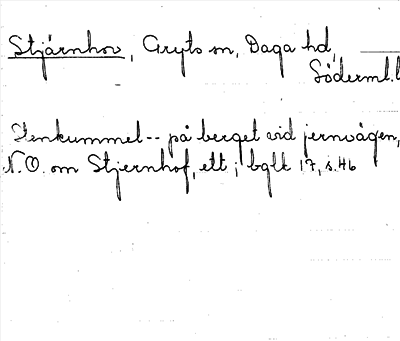 Stjärnhov, Gryts sn, Daga hd,
Söderml.l
Stenkummel -- på berget vid jernvägen,
N.O. om Stjernhof, ett; bglt 17, s. 46